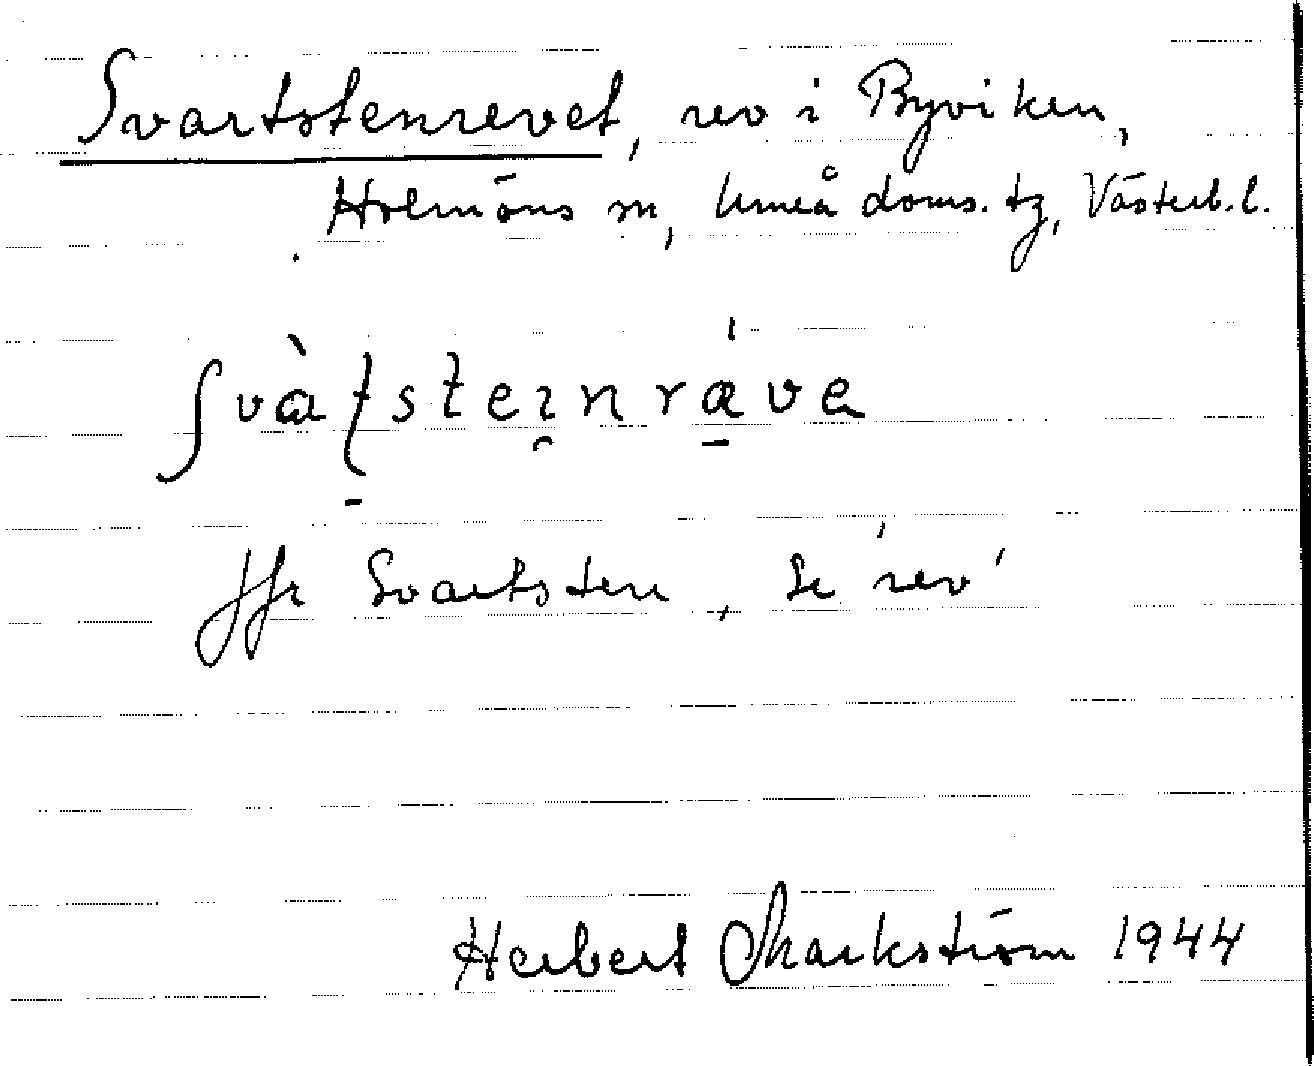 Svartstenrevet, rev i Byviken,
Holmöns sn, Umeå doms. tg, Västerb. l.
ʃvàʈsteı̯nrávə
Jfr Svartsten, se 'rev'
Herbert Markström 1944